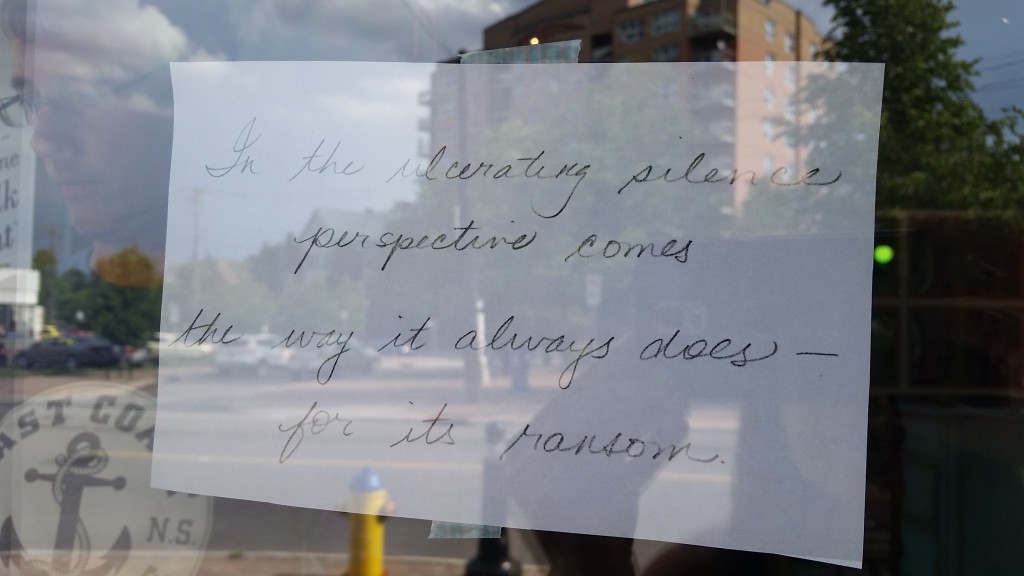 In the ulcerating silence
perspective comes
the way it always does —
for its ransom.
AST COA
N.S.
me
lk
at